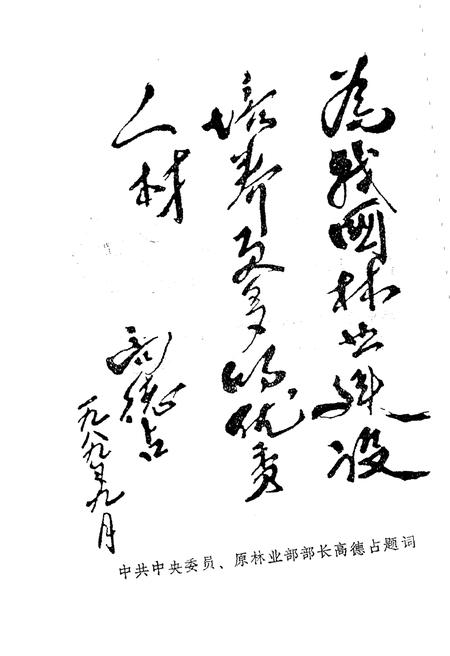 为我国林业建设
培养更多的优秀
人材
高德占
一九八九年九月
中共中央委员、原林业部部长高德占题词